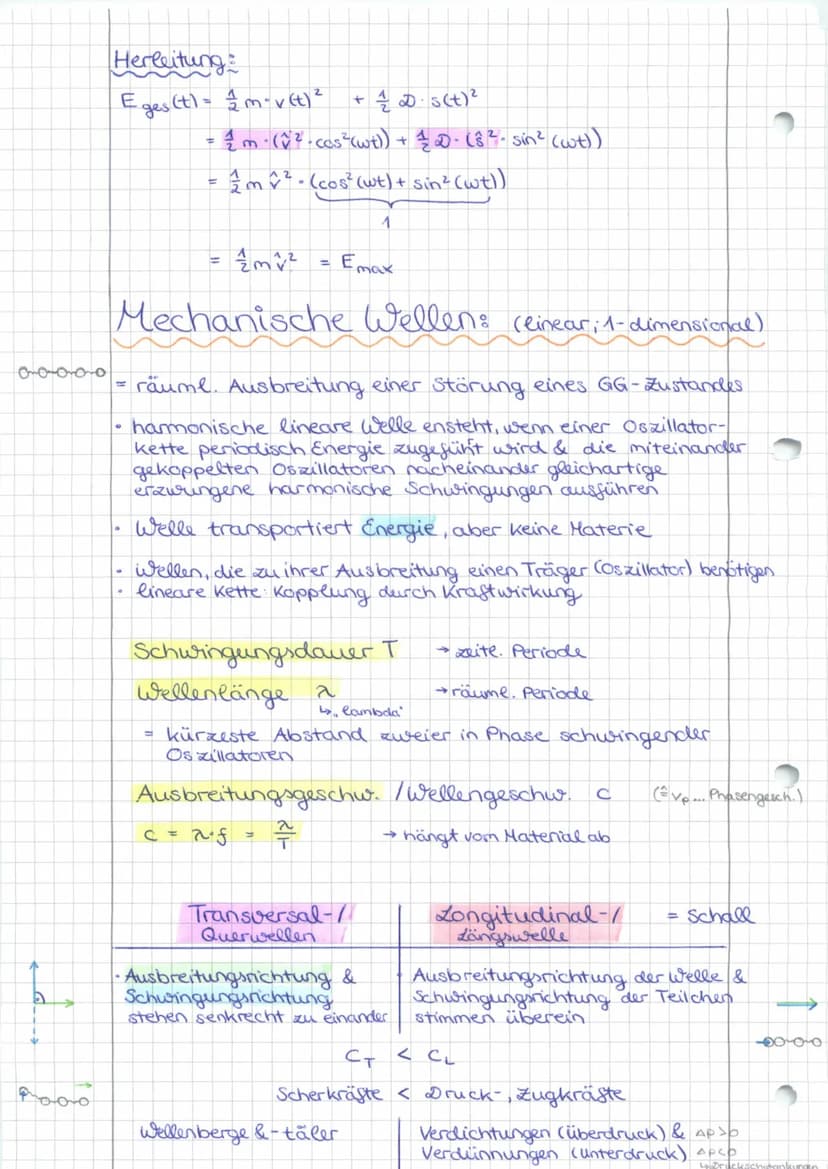 Herleitung:
E ges (t) = 1/2 m · v(t)² + 1/2 D · s(t)²
= 1/2 m · (v̂² · cos²(ωt)) + 1/2 D · (ŝ² · sin²(ωt))
= 1/2 m v̂² · (cos²(ωt) + sin²(ωt))
1
= 1/2 m v̂² = E max
Mechanische Wellen: (linear; 1-dimensional)
= räuml. Ausbreitung einer Störung eines GG-Zustandes
• harmonische lineare Welle ensteht, wenn einer Oszillator-
kette periodisch Energie zugeführt wird & die miteinander
gekoppelten Oszillatoren nacheinander gleichartige
erzwungene harmonische Schwingungen ausführen
• Welle transportiert Energie, aber keine Materie
• Wellen, die zu ihrer Ausbreitung einen Träger (Oszillator) benötigen
• lineare Kette: Kopplung durch Kraftwirkung
Schwingungsdauer T → zeitl. Periode
Wellenlänge λ → räuml. Periode
↳ „lambda"
= kürzeste Abstand zweier in Phase schwingender
Oszillatoren
Ausbreitungsgeschw. / Wellengeschw. c (≙ vp ... Phasengesch.)
c = λ · f = λ/T → hängt vom Material ab
Transversal-/ Longitudinal-/ = Schall
Querwellen Längswelle
• Ausbreitungsrichtung & Ausbreitungsrichtung der Welle &
Schwingungsrichtung Schwingungsrichtung der Teilchen
stehen senkrecht zu einander stimmen überein
CT < CL
Scherkräfte < Druck-, Zugkräfte
Wellenberge & -täler Verdichtungen (Überdruck) & ΔP>0
Verdünnungen (Unterdruck) ΔP<0
↳ Druckschwankungen